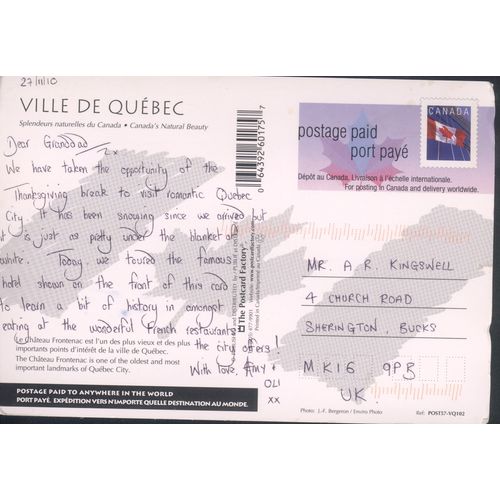 27/11/10
VILLE DE QUÉBEC
Splendeurs naturelles du Canada • Canada's Natural Beauty
Dear Granddad,
We have taken the opportunity of the
Thanksgiving break to visit romantic Quebec
City. It has been snowing since we arrived but
it is just as pretty under the blanket of
white. Today we toured the famous
hotel shown on the front of this card
to learn a bit of history in amongst
eating at the wonderful French restaurants
the city offers!
With love, Amy +
OLI
xx
Le Château Frontenac est l'un des plus vieux et des plus
importants points d'intérêt de la ville de Québec.
The Château Frontenac is one of the oldest and most
important landmarks of Québec City.
POSTAGE PAID TO ANYWHERE IN THE WORLD
PORT PAYÉ. EXPÉDITION VERS N'IMPORTE QUELLE DESTINATION AU MONDE.
0 64392 60175 7
The Postcard Factory
CANADA
postage paid
port payé
Dépôt au Canada. Livraison à l'échelle internationale.
For posting in Canada and delivery worldwide.
MR. A. R. KINGSWELL
4 CHURCH ROAD
SHERINGTON, BUCKS
MK16 9PB
UK.
Photo: J.-F. Bergeron / Enviro Photo
Ref: POST57-VQ102